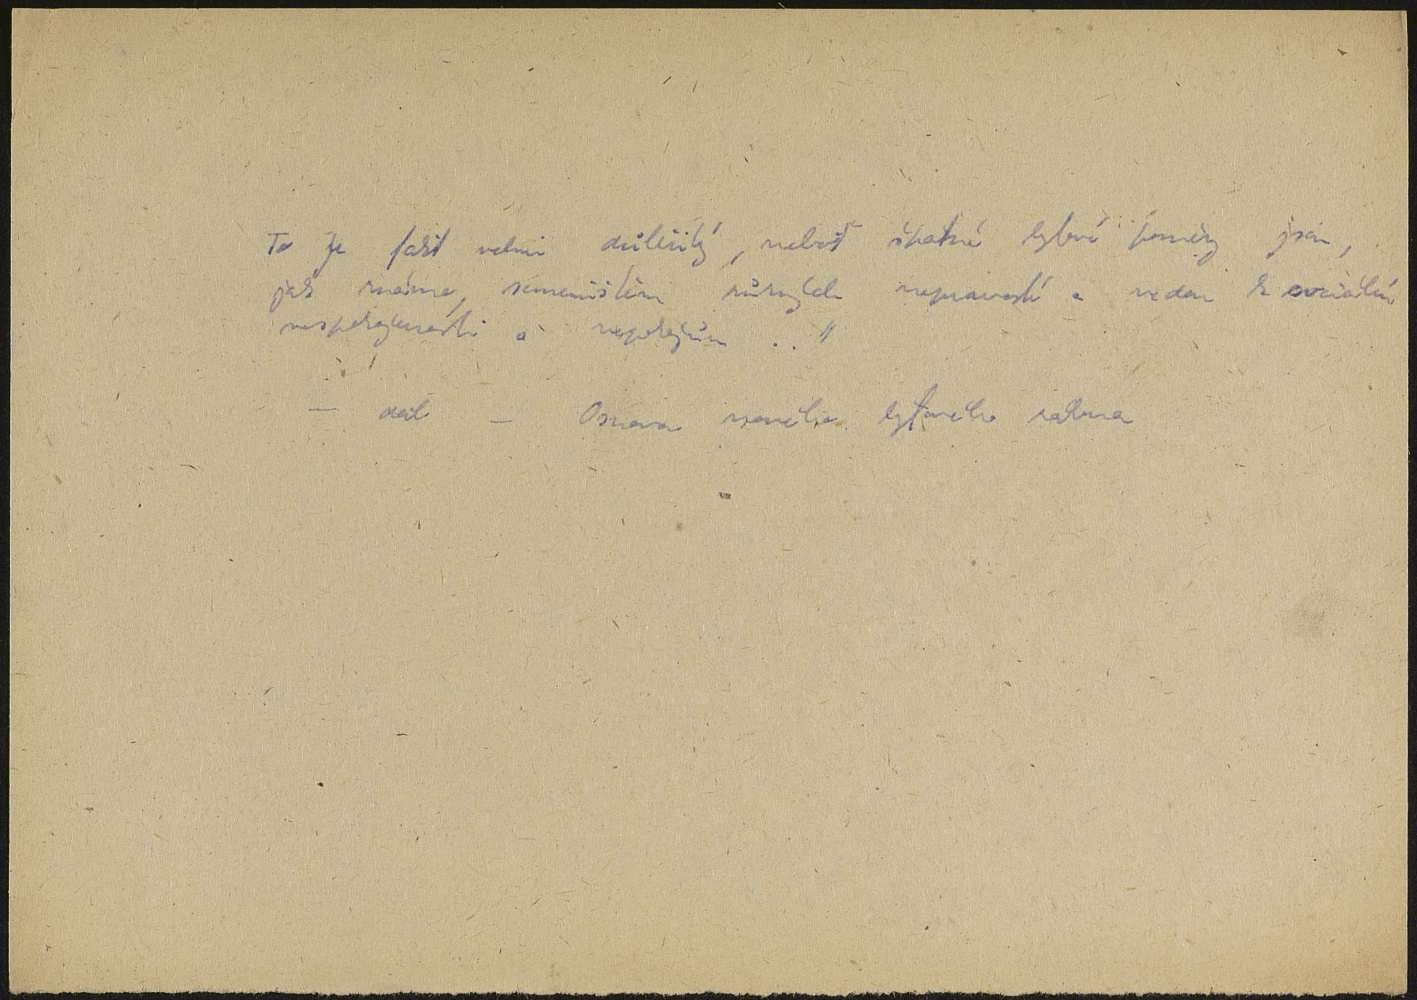 To je fakt velmi důležitý, neboť špatné bytové poměry jsou,
jak známo, semeništěm různých nepravostí a vedou k sociální
nespokojenosti a nepokojům .. "
— dál — Osnova nového bytového zákona